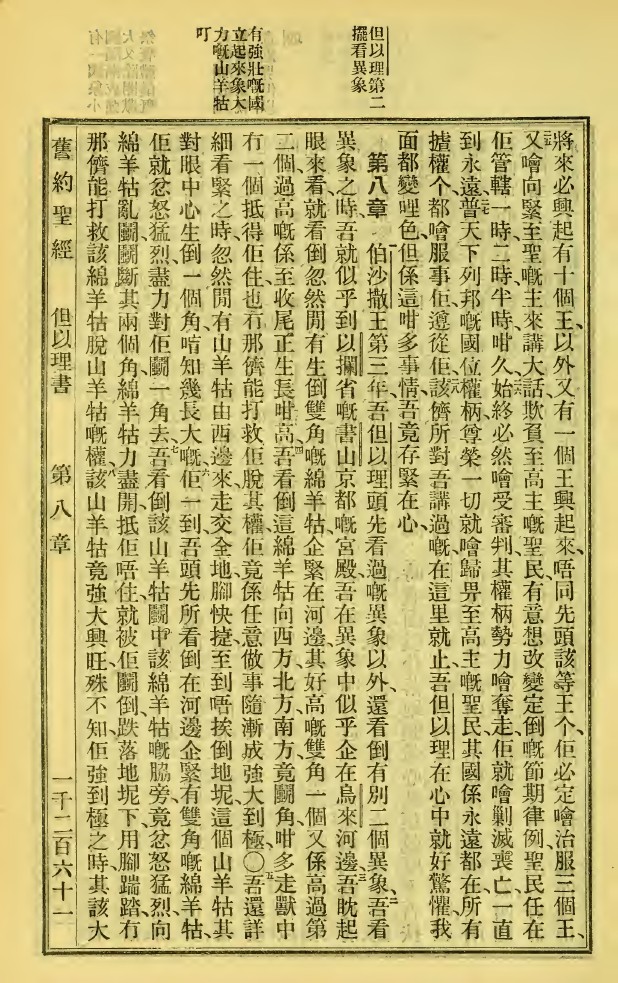 但以理第二
擺看異象
有強壯嘅國
立起來象大
方嘅山羊牯
叮
將來必興起有十個王、以外又有一個王興起來、唔同先頭該等王个、佢必定噲治服三個王、
又噲向緊至聖嘅主來講大話、欺負至高主嘅聖民、有意想改變定倒嘅節期律例、聖民任在
佢管轄一時、二時、半時、咁久、始終必然噲受審判、其權柄勢力噲奪走、佢就噲剿滅喪亡、一直
到永遠、普天下列邦嘅國位、權柄、尊榮、一切就噲歸畀至高主嘅聖民、其國係永遠都在、所有
揸權个、都噲服事佢、遵從佢、該儕所對吾講過嘅、在這里就止、吾但以理在心中就好驚懼、我
面都變哩色、但係這咁多事情、吾竟存緊在心
第八章 伯沙撒王第二年、吾但以理頭先看過嘅異象以外、還看倒有別二個異象、吾看
異象之時、吾就似乎到以攔省嘅書山京都嘅宮殿、吾在異象中似乎企在烏來河邊、吾眈起
眼來看、就看倒忽然閒有生倒雙角嘅綿羊牯、企緊在河邊、其好高嘅雙角、一個又係高過第
二個、過高嘅係至收尾正生長咁高、吾看倒這綿羊牯向西方、北方、南方、竟鬭角、咁多走獸中
冇一個抵得佢住、也冇那儕能打救佢脫其權、佢竟係任意做事、隨漸成強大到極、〇吾還詳
細看緊之時、忽然閒有山羊牯由西邊來、走交全地、腳快捷至到唔挨倒地坭、這個山羊牯、其
對眼中心生倒一個角、唔知幾長大嘅、佢一到吾頭先所看倒在河邊企緊有雙角嘅綿羊牯、
佢就忿怒猛烈、盡力對佢鬭一角去、吾看倒該山羊牯鬭中該綿羊牯嘅脇旁、竟忿怒猛烈、向
綿羊牯亂鬭、鬭斷其兩個角、綿羊牯力盡開、抵佢唔住、就被佢鬭倒、跌落地坭下、用腳踹踏、冇
那儕能打救該綿羊牯脫山羊牯嘅權、該山羊牯竟強大興旺、殊不知佢強到極之時、其該大
舊約聖經 但以理書 第八章 一千二百六十一